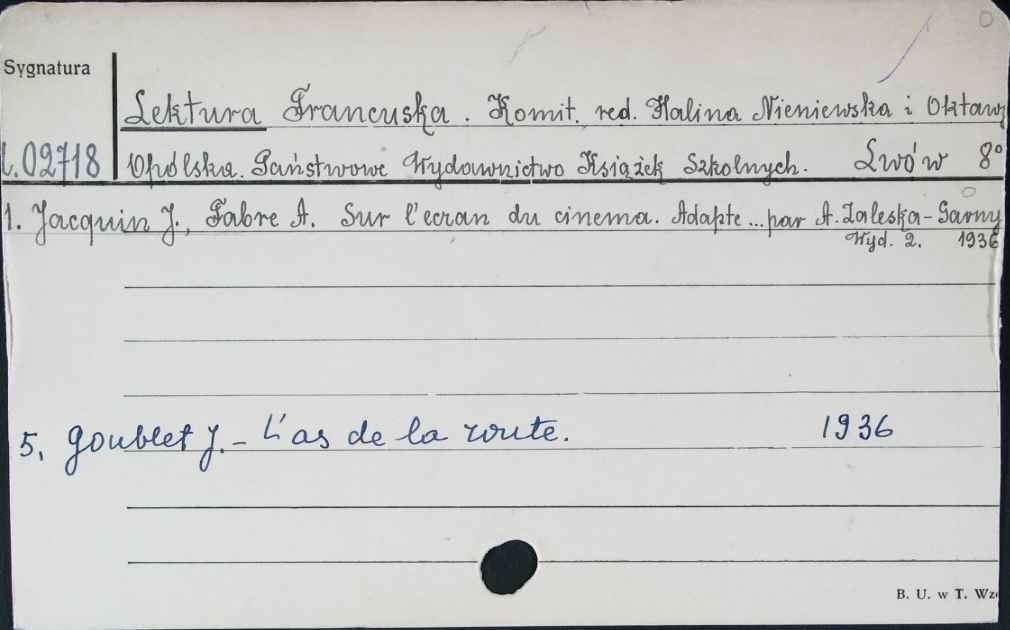 Sygnatura
Lektura Francuska. Komit. red. Halina Nieniewska i Oktaw
02718 Opólska. Państwowe Wydawnictwo Książek Szkolnych. Lwów 8°
1. Jacquin J., Fabre A. Sur l'ecran du cinema. Adapte ... par A. Zaleska-Garny
Wyd. 2. 1936
5, Goublet J. - L'as de la route. 1936
B. U. w T. Wz